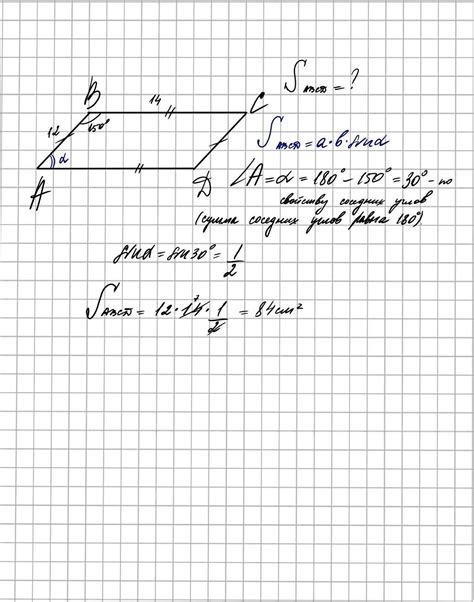 B 14 C
S ABCD = ?
12 150°
S ABCD = a·b·sinα
α
A D
∠A = α = 180° − 150° = 30° - по
свойству соседних углов
(сумма соседних углов равна 180°).
sinα = sin30° = 1/2
S ABCD = 12 · 14 · 1/2 = 84 см²
7